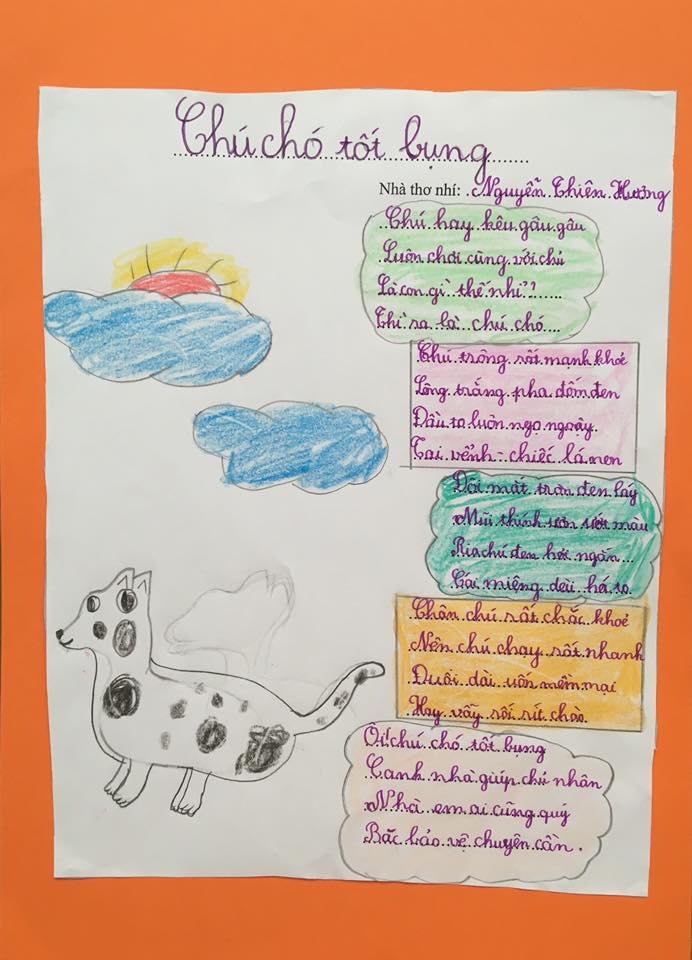 Chú chó tốt bụng
Nhà thơ nhí: Nguyễn Thiên Hương
Chú hay kêu gâu gâu
Luôn chơi cùng với chủ
Là con gì thế nhỉ??......
Thì ra là chú chó...
Chú trông rất mạnh khoẻ
Lông trắng pha đốm đen
Đầu to luôn ngọ nguậy.
Tai vểnh - chiếc lá non
Đôi mắt tròn đen láy
Mũi thính ươn ướt màu
Ria chú đen hơi ngắn...
Cái miệng đều há to
Chân chú rất chắc khoẻ
Nên chú chạy rất nhanh
Đuôi dài uốn mềm mại
Hay vẫy rối rít chào.
Ôi! chú chó tốt bụng
Canh nhà giúp chủ nhân
Nhà em ai cũng quý
Bắc bảo vệ chuyên cần.